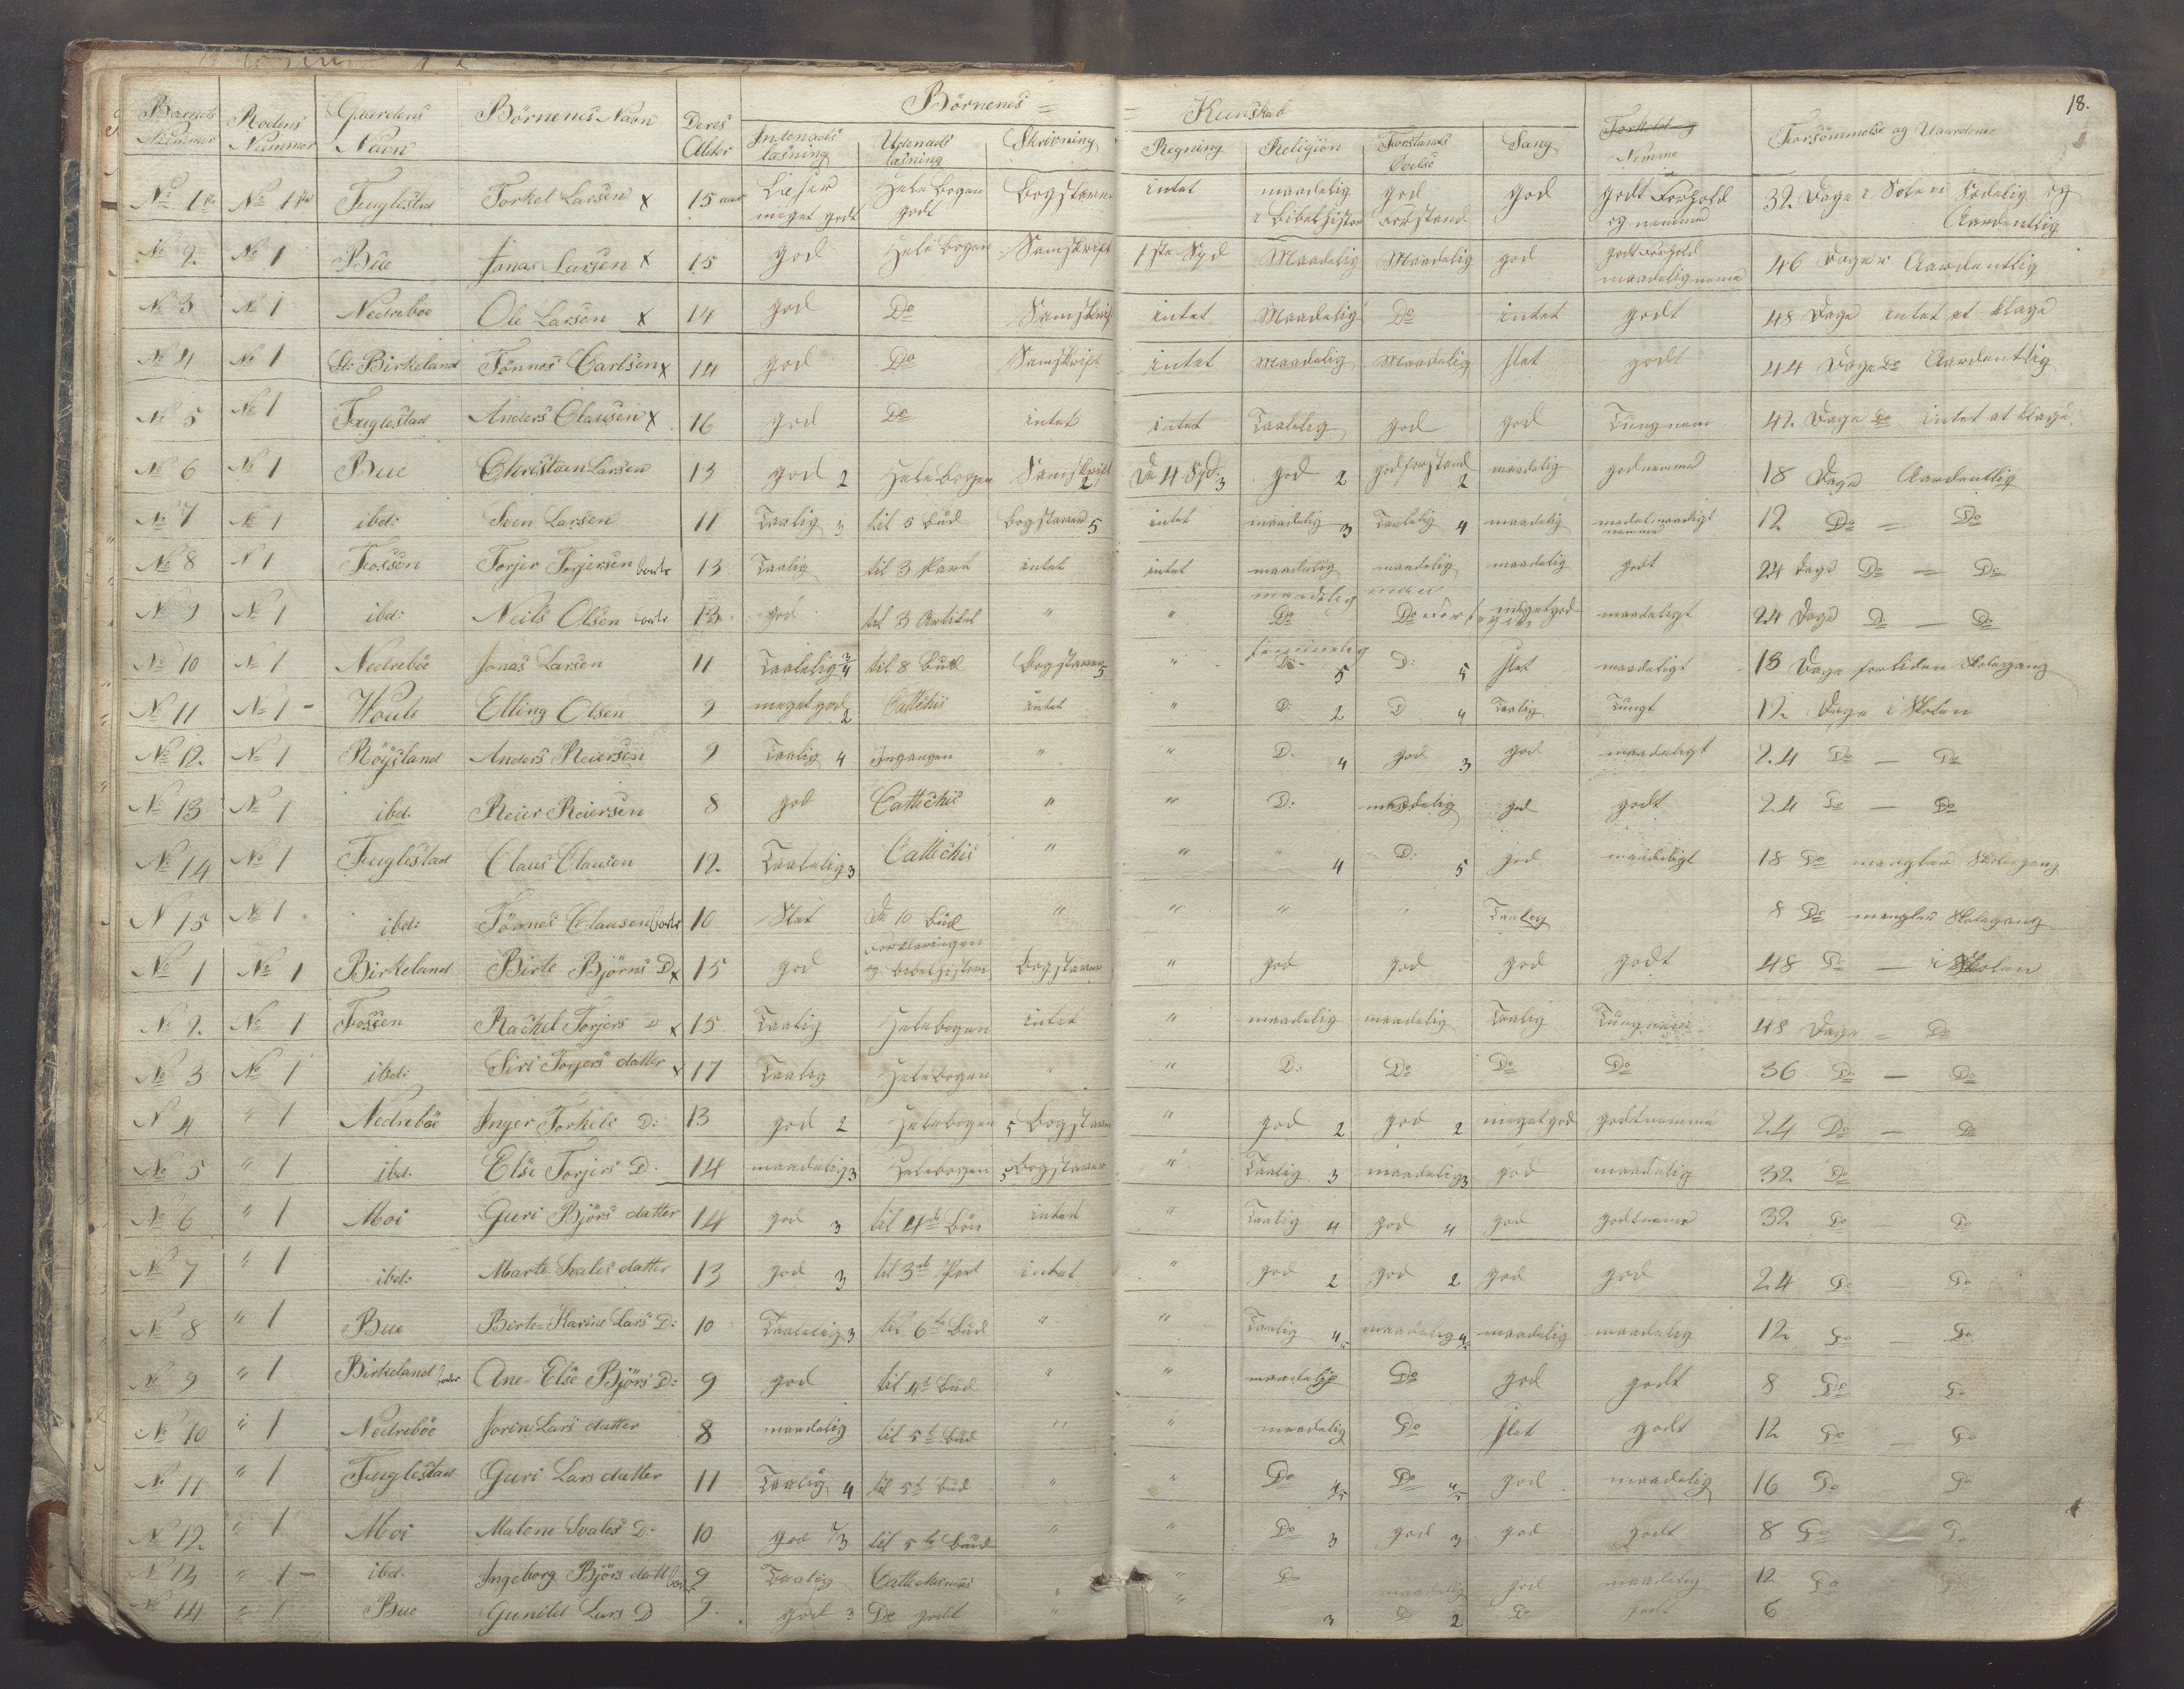 18.
Barnets Nummer | Rodens Nummer | Gaardens Navn | Börnenes Navn | Deres Alder | Börnenes = | = Kunskab | Forhold og Nemme | Forsömmelse og Uaardener
Indenads læsning | Udenads læsning | Skrivning | Regning | Religiön | Forstands Övelse | Sang
No 1te | No 1te | Fuglestad | Torkel Larsen x | 15 aar | Læser meget godt | Hele bogen godt | Bogstaver | intet | maadelig i Bibelhistori | god Forstand | god | godt Forhold og nemme | 32 Dage i Skolen Sædelig og Aardentlig
No 2. | No 1 | Bue | Jonas Larsen x | 15 | god | Hele bogen | Samskrift | 1ste Spd | Maadelig | Maadelig | god | godt Forhold maadelig nemme | 46 Dage Aardentlig
No 3 | No 1 | Nedreböe | Ole Larsen x | 14 | god | Do | Samskrift | intet | Maadelig | Do | intet | godt | 48 Dage intet at klage
No 4 | No 1 | St: Birkeland | Tönnes Carlsen x | 14 | god | Do | Samskrift | intet | Maadelig | Maadelig | slet | godt | 44 Dage Do Aardentlig
No 5 | No 1 | Fuglestad | Anders Clausen x | 16 | god | Do | intet | intet | Taalelig | god | god | Tungnem | 42 Dage Do intet at klage
No 6 | No 1 | Bue | Christian Larsen | 13 | god 2 | Hele bogen | Samskrift 2 | De 4 Spd 3 | god 2 | god forstand 2 | maadelig | god nemme | 18 Dage Aardentlig
No 7 | No 1 | ibd: | Sven Larsen | 11 | Taalig 3 | til 5 bud | Bogstaver 5 | intet | maadelig 3 | Taalelig 4 | maadelig | nemme | 12 Do = Do
No 8 | N 1 | Fossen | Torjer Torjersen borte | 13 | Taalig | til 3 Part | intet | intet | maadelig | maadelig | maadelig | godt | 24 Dage Do — Do
No 9 | No 1 | ibd: | Neils Olsen borte | 13 | god | til 3 Artikel | " | " | maadelig Do | Do | meget god | maadeligt | 24 Dage Do — Do
No 10 | No 1 | Nedreböe | Jonas Larsen | 11 | Taalelig 3/4 | til 8 bud | Bogstaver 5 | " | Do 5 | D: 5 | slet | maadeligt | 18 Dage for liden Skolegang
No 11 | No 1 - | Houb | Elling Olsen | 9 | meget god 2 | Cattechis | intet | " | D: 2 | D 4 | Taalig | Tungt | 12 Dage i Skolen
No 12. | No 1 | Röysland | Anders Reiersen | 9 | Taalig 4 | Ingangen | " | " | D. 4 | god 3 | god | maadeligt | 24 Do — Do
No 13 | No 1 | ibd. | Reier Reiersen | 8 | god | Cattechis | " | " | D: | maadelig | god | godt | 24 Do — Do
No 14 | No 1 | Fuglestad | Claus Clausen | 12. | Taalelig 3 | Cattechis | " | " | " 4 | D: 5 | god | maadeligt | 18 Do mangler Skolegang
N 15 | No 1 | ibd: | Tönnes Clausen borte | 10 | Slet | De 10 bud | " | " | " | " | Taalig | 8 Do mangler Skolegang
No 1 | No 1 | Birkeland | Birte Björns D x | 15 | god | Forklaringen og bibelhistori | Bogstaver | " | god | god | god | godt | 48 Do — i Skolen
No 2. | No 1 | Fossen | Rachel Torjers D x | 15 | Taalig | Hele bogen | intet | " | maadelig | maadelig | Taalig | Tungnem | 48 Dage = Do
No 3 | No 1 | ibd: | Siri Torjers datter x | 17 | Taalig | Hele bogen | " | " | D: | Do | Do | Do | 36 Do — Do
N 4 | " 1 | Nedreböe | Inger Torkels D: | 13 | god 2 | Hele bogen | 5 Bogstaver | " | god 2 | god 2 | meget god | godt nemme | 24 Do — Do
No 5 | " 1 | ibd. | Else Torjers D. | 14 | maadelig 3 | Hele bogen | 5 Bogstaver | " | Taalig 3 | maadelig 3 | god | maadelig | 32 Do
No 6 | " 1 | Moi | Guri Björs datter | 14 | god 3 | til 4de bön | intet | " | Taalig 4 | god 4 | god | godt nemme | 32 Do Do
No 7 | " 1 | ibd: | Marte Svales datter | 13 | god 3 | til 3de Part | intet | " | god 2 | god 2 | god | god | 24 Do Do
No 8 | " 1 | Bue | Birte-Karine Lars D: | 10 | Taalelig 3 | til 6te bud | " | " | Taalig 4 | maadelig 4 | maadelig | maadelig | 12 Do Do
No 9 | " 1 | Birkeland borte | Ane-Else Björs D: | 9 | god | til 4de bud | " | " | maadelig | Do | god | godt | 8 Do Do
No 10 | " 1 | Nedreböe | Jorin Lars datter | 8 | maadelig | til 5te bud | " | " | maadelig | Do | slet | godt | 12 Do — Do
No 11 | " 1 | Fuglestad | Guri Lars datter | 11 | Taalig 4 | til 5te bud | " | " | Do 4/5 | Do 4/5 | god | maadelig | 16 Do Do
No 12. | " 1 | Moi | Malene Svales D: | 10 | god 3 | til 5te bud | " | " | Do 3 | god 3 | god | godt | 8 Do Do
N 13 | " 1 - | ibd. | Ingeborg Björs datt borte | 9 | Taalig | Cattechismus | " | " | Do | maadelig | god | maadelig | 12 Do Do
No 14 | " 1 | Bue | Gunild Lars D | 9. | god 3 | Do godt | " | " | 3 | Do 2 | Do | godt | 6